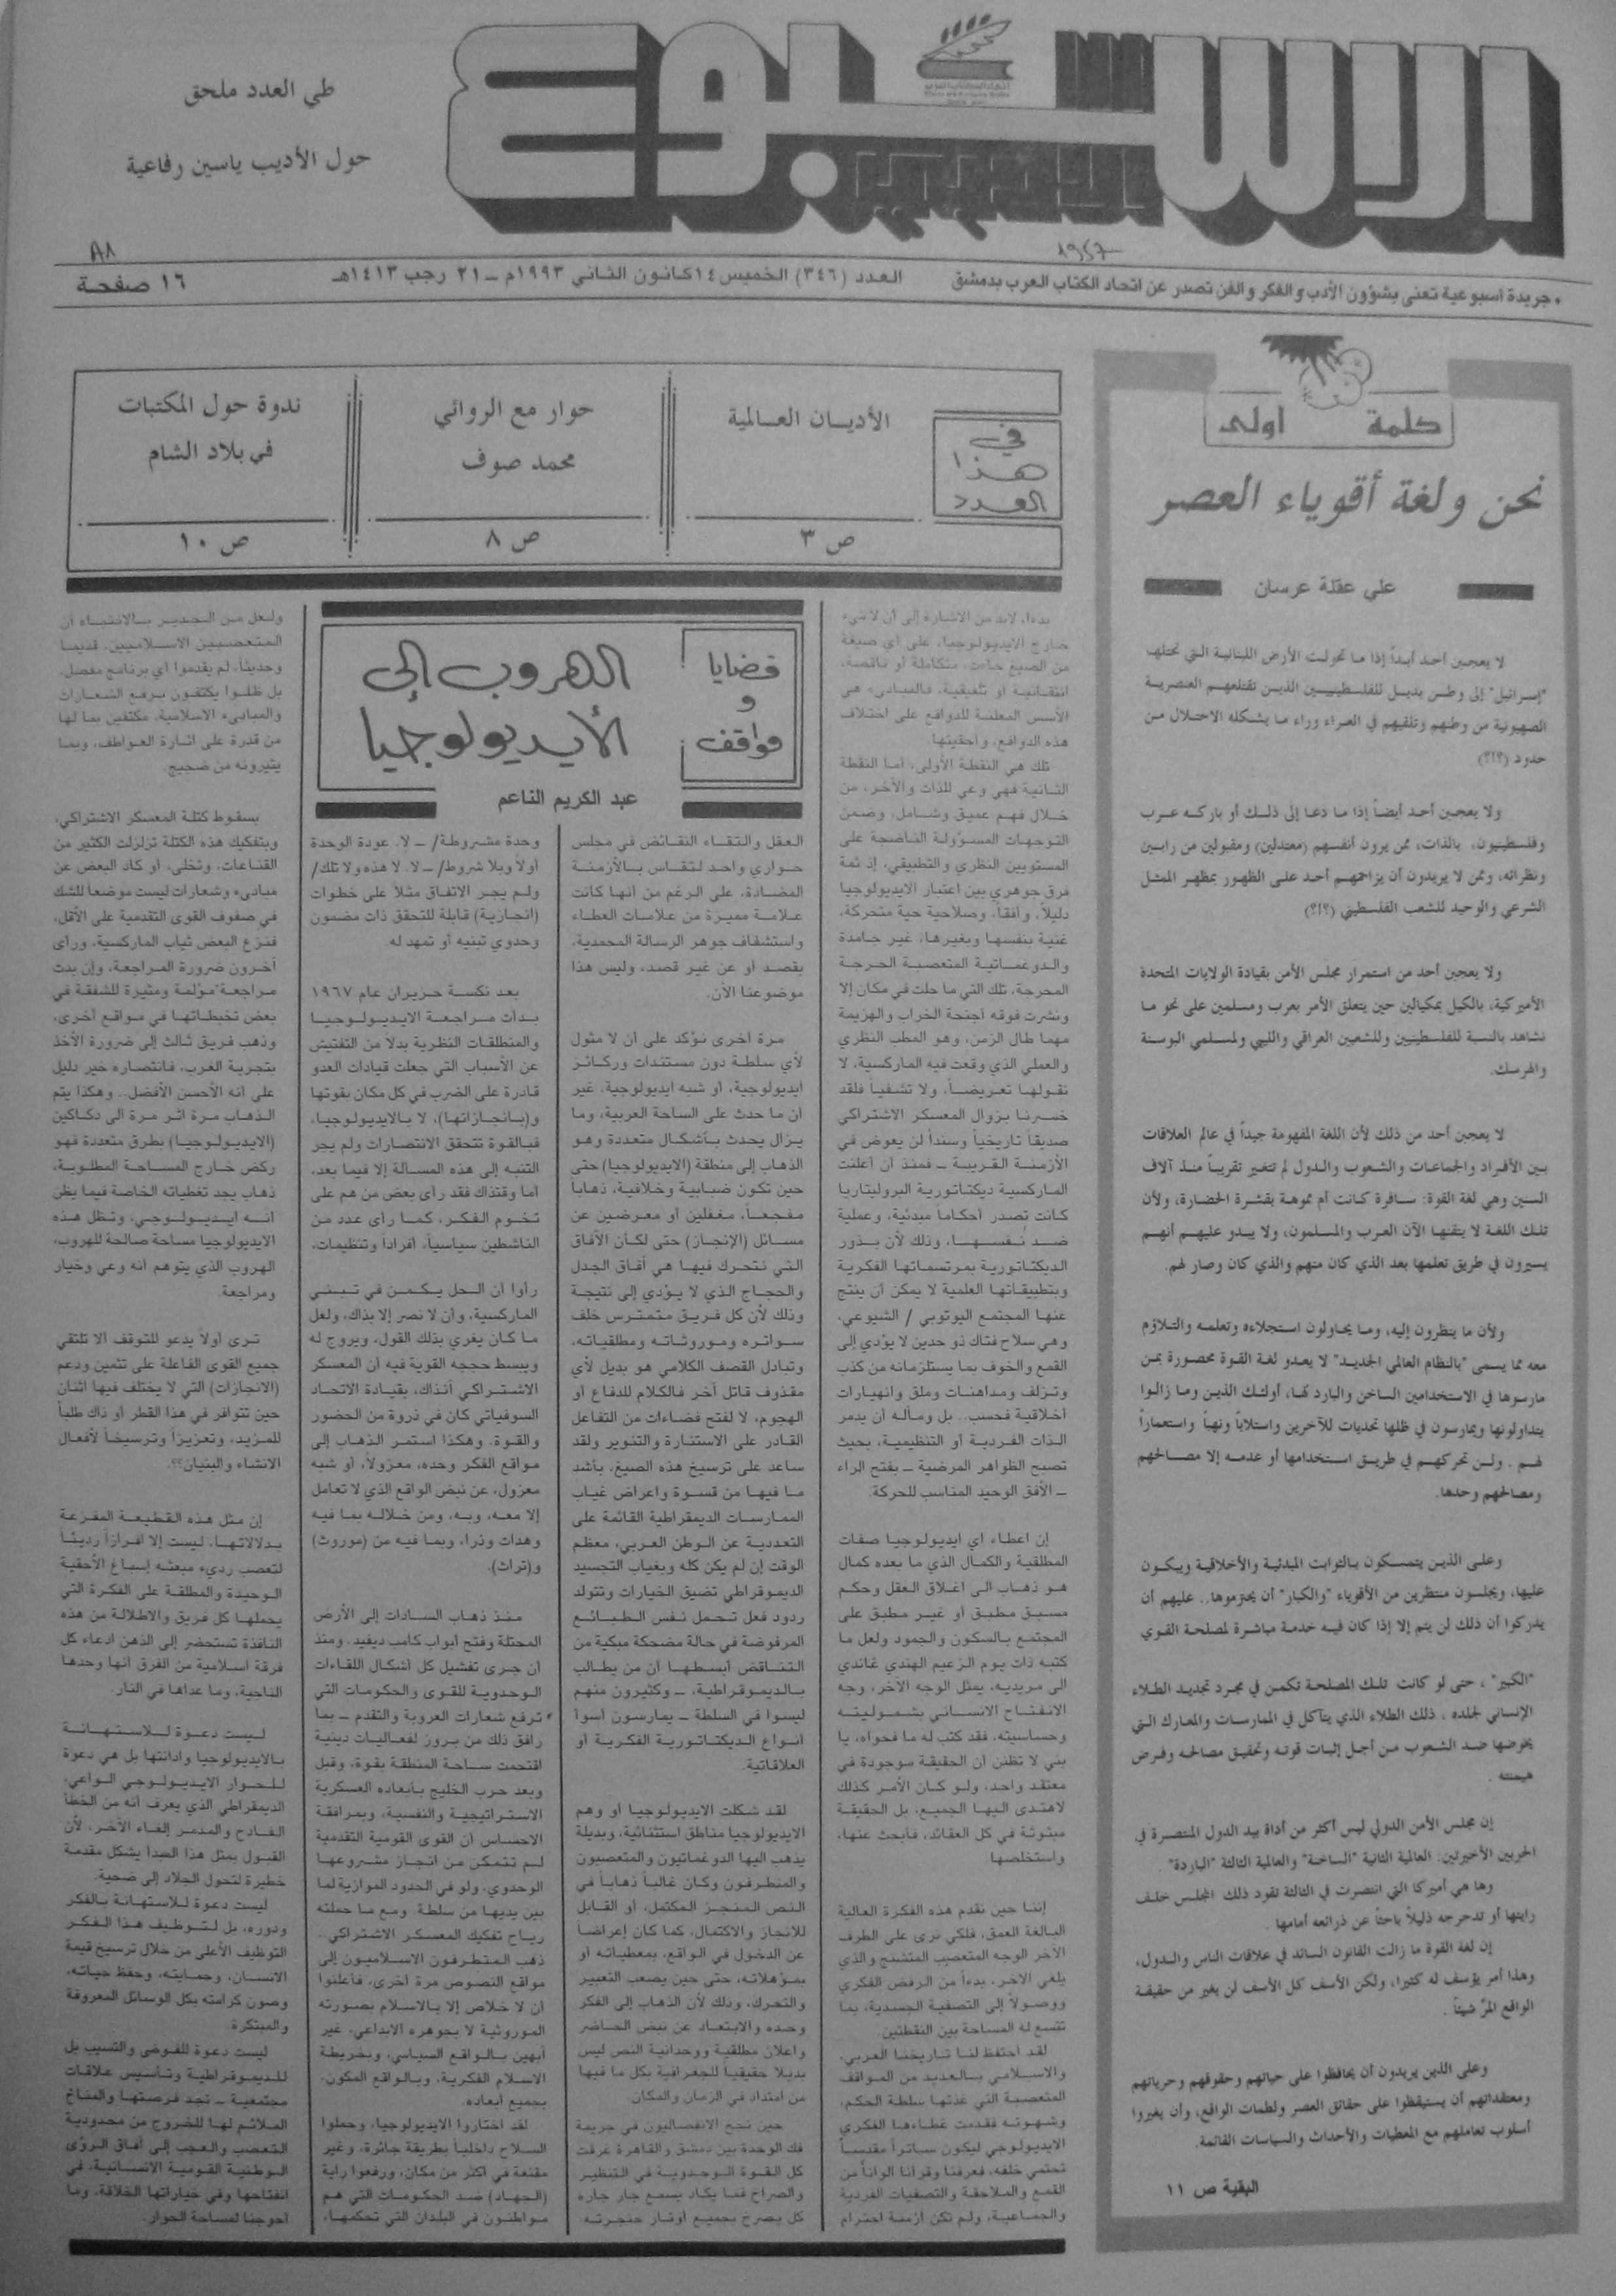 الأسبوع
الأدبي
طي العدد ملحق
حول الأديب ياسين رفاعية
١٩٤٧
٨٨
• جريدة أسبوعية تعنى بشؤون الأدب والفكر والفن تصدر عن اتحاد الكتاب العرب بدمشق
العدد (٣٤٦) الخميس ١٤ كانون الثاني ١٩٩٣م – ٢١ رجب ١٤١٣هـ
١٦ صفحة
كلمة أولى
نحن ولغة أقوياء العصر
علي عقلة عرسان
لا يعجبن أحد أبداً إذا ما تحولت الأرض اللبنانية التي تحتلها
"إسرائيل" إلى وطن بديل للفلسطينيين الذين تقتلعهم العنصرية
الصهيونية من وطنهم وتلقيهم في العراء وراء ما يشكله الاحتلال من
حدود (؟!؟)
ولا يعجبن أحد أيضاً إذا ما دعا إلى ذلك أو باركه عرب
وفلسطينيون، بالذات، ممن يرون أنفسهم (معتدلين) ومقبولين من رابين
ونظرائه، وممن لا يريدون أن يزاحمهم أحد على الظهور بمظهر الممثل
الشرعي والوحيد للشعب الفلسطيني (؟!؟)
ولا يعجبن أحد من استمرار مجلس الأمن بقيادة الولايات المتحدة
الأميركية، بالكيل بمكيالين حين يتعلق الأمر بعرب ومسلمين على نحو ما
نشاهد بالنسبة للفلسطينيين وللشعبين العراقي والليبي ولمسلمي البوسنة
والهرسك.
لا يعجبن أحد من ذلك لأن اللغة المفهومة جيداً في عالم العلاقات
بين الأفراد والجماعات والشعوب والدول لم تتغير تقريباً منذ آلاف
السنين وهي لغة القوة: سافرة كانت أم مموهة بقشرة الحضارة، ولأن
تلك اللغة لا يتقنها الآن العرب والمسلمون، ولا يبدو عليهم أنهم
يسيرون في طريق تعلمها بعد الذي كان منهم والذي كان وصار لهم.
ولأن ما ينظرون إليه، وما يحاولون استجلاءه وتعلمه والتلاؤم
معه مما يسمى "بالنظام العالمي الجديد" لا يعدو لغة القوة محصورة بمن
مارسوها في الاستخدامين الساخن والبارد لها، أولئك الذين وما زالوا
يتداولونها ويمارسون في ظلها تحديات للآخرين واستلاباً ونهباً واستعماراً
لهم . ولن تحركهم في طريق استخدامها أو عدمه إلا مصالحهم
ومصالحهم وحدها.
وعلى الذين يتمسكون بالثوابت المبدئية والأخلاقية ويبكون
عليها، ويجلسون منتظرين من الأقوياء "والكبار" أن يحترموها.. عليهم أن
يدركوا أن ذلك لن يتم إلا إذا كان فيه خدمة مباشرة لمصلحة القوي
"الكبير" ، حتى لو كانت تلك المصلحة تكمن في مجرد تجديد الطلاء
الإنساني لجلده ، ذلك الطلاء الذي يتآكل في الممارسات والمعارك التي
يخوضها ضد الشعوب من أجل إثبات قوته وتحقيق مصالحه وفرض
هيمنته .
إن مجلس الأمن الدولي ليس أكثر من أداة بيد الدول المنتصرة في
الحربين الأخيرتين: العالمية الثانية "الساخنة" والعالمية الثالثة "الباردة" .
وها هي أميركا التي انتصرت في الثالثة تقود ذلك المجلس خلف
رايتها أو تدحرجه ذليلاً باحثاً عن ذرائعه أمامها .
إن لغة القوة ما زالت القانون السائد في علاقات الناس والدول،
وهذا أمر يؤسف له كثيرا، ولكن الأسف كل الأسف لن يغير من حقيقة
الواقع المرّ شيئاً .
وعلى الذين يريدون أن يحافظوا على حياتهم وحقوقهم وحرياتهم
ومعتقداتهم أن يستيقظوا على حقائق العصر ولطمات الواقع، وأن يغيروا
أسلوب تعاملهم مع المعطيات والأحداث والسياسات القائمة.
البقية ص ١١
في هذا العدد
الأديان العالمية
ص ٣
حوار مع الروائي
محمد صوف
ص ٨
ندوة حول المكتبات
في بلاد الشام
ص ١٠
قضايا
و
مواقف
الهروب إلى
الأيديولوجيا
عبد الكريم الناعم
بدءاً، لابد من الاشارة إلى أن لا شيء
خارج الايديولوجيا، على أي صيغة
من الصيغ جاءت، متكاملة أو ناقصة،
انتقائية أو تلفيقية، فالمبادىء هي
الأسس المعلنة للدوافع على اختلاف
هذه الدوافع، وأحقيتها.
تلك هي النقطة الأولى، أما النقطة
الثانية فهي وعي للذات والآخر، من
خلال فهم عميق وشامل، وضمن
التوجهات المسؤولة الناضجة على
المستويين النظري والتطبيقي، إذ ثمة
فرق جوهري بين اعتبار الايديولوجيا
دليلاً، وأفقاً، وصلاحية حية متحركة،
غنية بنفسها وبغيرها، غير جامدة
والدوغماتية المتعصبة الحرجة
المحرجة، تلك التي ما حلت في مكان إلا
ونشرت فوقه أجنحة الخراب والهزيمة
مهما طال الزمن، وهو المطب النظري
والعملي الذي وقعت فيه الماركسية، لا
نقولها تعريضاً، ولا تشفياً فلقد
خسرنا بزوال المعسكر الاشتراكي
صديقاً تاريخياً وسنداً لن يعوض في
الأزمنة القريبة – فمنذ أن أعلنت
الماركسية ديكتاتورية البروليتاريا
كانت تصدر أحكاماً مبدئية، وعملية
ضد نفسها، وذلك لأن بذور
الديكتاتورية بمرتسماتها الفكرية
وبتطبيقاتها العلمية لا يمكن أن ينتج
عنها المجتمع اليوتوبي / الشيوعي،
وهي سلاح فتاك ذو حدين لا يؤدي إلى
القمع والخوف بما يستلزمانه من كذب
وتزلف ومداهنات وملق وانهيارات
أخلاقية فحسب.. بل ومآله أن يدمر
الذات الفردية أو التنظيمية، بحيث
تصبح الظواهر المرضية – بفتح الراء
– الأفق الوحيد المناسب للحركة.
إن اعطاء أي ايديولوجيا صفات
المطلقية والكمال الذي ما بعده كمال
هو ذهاب الى اغلاق العقل وحكم
مسبق مطبق أو غير مطبق على
المجتمع بالسكون والجمود ولعل ما
كتبه ذات يوم الزعيم الهندي غاندي
الى مريديه، يمثل الوجه الآخر، وجه
الانفتاح الانساني بشموليته
وحساسيته، فقد كتب له ما فحواه، يا
بني لا تظنن أن الحقيقة موجودة في
معتقد واحد، ولو كان الأمر كذلك
لاهتدى اليها الجميع، بل الحقيقة
مبثوثة في كل العقائد، فابحث عنها،
واستخلصها.
إننا حين نقدم هذه الفكرة العالية
البالغة العمق، فلكي نرى على الطرف
الآخر الوجه المتعصب المتشنج والذي
يلغي الآخر، بدءاً من الرفض الفكري
ووصولاً إلى التصفية الجسدية، بما
تتسع له المساحة بين النقطتين.
لقد احتفظ لنا تاريخنا العربي،
والاسلامي بالعديد من المواقف
المتعصبة التي غذتها سلطة الحكم،
وشهوته فقدمت غطاءها الفكري
الايديولوجي ليكون ساتراً مقدساً
تحتمي خلفه، فعرفنا وقرأنا ألواناً من
القمع والملاحقة والتصفيات الفردية
والجماعية، ولم تكن أزمنة احترام
العقل والتقاء النقائض في مجلس
حواري واحد لتقاس بالأزمنة
المضادة، على الرغم من أنها كانت
علامة مميزة من علامات العطاء
واستشفاف جوهر الرسالة المحمدية،
بقصد أو عن غير قصد، وليس هذا
موضوعنا الآن.
مرة أخرى نؤكد على أن لا مثول
لأي سلطة دون مستندات وركائز
ايديولوجية، أو شبه ايديولوجية، غير
أن ما حدث على الساحة العربية، وما
يزال يحدث بأشكال متعددة وهو
الذهاب إلى منطقة (الايديولوجيا) حتى
حين تكون ضبابية وخلافية، ذهاباً
مفجعاً، مغفلين أو معرضين عن
مسائل (الإنجاز) حتى لكأن الآفاق
التي نتحرك فيها هي آفاق الجدل
والحجاج الذي لا يؤدي إلى نتيجة
وذلك لأن كل فريق متمترس خلف
سواتره وموروثاته ومطلقياته،
وتبادل القصف الكلامي هو بديل لأي
مقذوف قاتل آخر فالكلام للدفاع أو
الهجوم، لا لفتح فضاءات من التفاعل
القادر على الاستنارة والتنوير ولقد
ساعد على ترسيخ هذه الصيغ، بأشد
ما فيها من قسوة وأعراض غياب
الممارسات الديمقراطية القائمة على
التعددية عن الوطن العربي، معظم
الوقت إن لم يكن كله وبغياب التجسيد
الديموقراطي تضيق الخيارات وتتولد
ردود فعل تحمل نفس الطبائع
المرفوضة في حالة مضحكة مبكية من
التناقض أبسطها أن من يطالب
بالديموقراطية، – وكثيرون منهم
ليسوا في السلطة – يمارسون أسوأ
أنواع الديكتاتورية الفكرية أو
العلاقاتية.
لقد شكلت الايديولوجيا أو وهم
الايديولوجيا مناطق استثنائية، وبديلة
يذهب اليها الدوغماتيون والمتعصبون
والمتطرفون وكان غالباً ذهاباً في
النص المنجز المكتمل، أو القابل
للانجاز والاكتمال، كما كان إعراضاً
عن الدخول في الواقع، بمعطياته أو
بمؤهلاته، حتى حين يصعب التعبير
والتحرك، وذلك لأن الذهاب إلى الفكر
وحده والابتعاد عن نبض الحاضر
واعلان مطلقية ووحدانية النص ليس
بديلا حقيقياً للجغرافية بكل ما فيها
من امتداد في الزمان والمكان.
حين نجح الانفصاليون في جريمة
فك الوحدة بين دمشق والقاهرة غرقت
كل القوة الوحدوية في التنظير
والصراخ فما يكاد يسمع جار جاره
كل يصرخ بجميع أوتار حنجرته
وحدة مشروطة/ – لا. عودة الوحدة
أولاً وبلا شروط/ – لا. لا هذه ولا تلك/
ولم يجر الاتفاق مثلاً على خطوات
(انجازية) قابلة للتحقق ذات مضمون
وحدوي تبنيه أو تمهد له.
بعد نكسة حزيران عام ١٩٦٧
بدأت مراجعة الايديولوجيا
والمنطلقات النظرية بدلا من التفتيش
عن الأسباب التي جعلت قيادات العدو
قادرة على الضرب في كل مكان بقوتها
و(بانجازاتها)، لا بالايديولوجيا،
فبالقوة تتحقق الانتصارات ولم يجر
التنبه إلى هذه المسألة إلا فيما بعد،
أما وقتذاك فقد رأى بعض من هم على
تخوم الفكر، كما رأى عدد من
الناشطين سياسياً، أفراداً وتنظيمات،
رأوا أن الحل يكمن في تبني
الماركسية، وأن لا نصر إلا بذاك، ولعل
ما كان يغري بذلك القول، ويروج له
ويبسط حججه القوية فيه أن المعسكر
الاشتراكي آنذاك، بقيادة الاتحاد
السوفياتي كان في ذروة من الحضور
والقوة، وهكذا استمر الذهاب إلى
مواقع الفكر وحده، معزولاً، أو شبه
معزول، عن نبض الواقع الذي لا تعامل
إلا معه، وبه، ومن خلاله بما فيه
وهدات وذرا، وبما فيه من (موروث)
و(تراث).
منذ ذهاب السادات إلى الأرض
المحتلة وفتح أبواب كامب ديفيد، ومنذ
أن جرى تفشيل كل أشكال اللقاءات
الوحدوية للقوى والحكومات التي
ترفع شعارات العروبة والتقدم – بما
رافق ذلك من بروز لفعاليات دينية
اقتحمت ساحة المنطقة بقوة، وقبل
وبعد حرب الخليج بأبعاده العسكرية
الاستراتيجية والنفسية، وبمرافقة
الاحساس أن القوى القومية التقدمية
لم تتمكن من انجاز مشروعها
الوحدوي، ولو في الحدود الموازية لما
بين يديها من سلطة، ومع ما حملته
رياح تفكيك المعسكر الاشتراكي..
ذهب المتطرفون الاسلاميون إلى
مواقع النصوص مرة أخرى، فأعلنوا
أن لا خلاص إلا بالاسلام بصورته
الموروثية لا بجوهره الابداعي، غير
آبهين بالواقع السياسي، وبخريطة
الاسلام الفكرية، وبالواقع المكون،
بجميع أبعاده.
لقد اختاروا الايديولوجيا، وحملوا
السلاح داخلياً بطريقة جائرة، وغير
مقنعة في أكثر من مكان، ورفعوا راية
(الجهاد) ضد الحكومات التي هم
مواطنون في البلدان التي تحكمها،
ولعل من الجدير بالانتباه أن
المتعصبين الاسلاميين، قديما
وحديثاً، لم يقدموا أي برنامج مفصل،
بل ظلوا يكتفون برفع الشعارات
والمبادىء الاسلامية، مكتفين بما لها
من قدرة على اثارة العواطف، وبما
يثيرونه من ضجيج.
بسقوط كتلة المعسكر الاشتراكي،
وبتفكيك هذه الكتلة تزلزلت الكثير من
القناعات، وتخلى، أو كاد البعض عن
مبادىء وشعارات ليست موضعاً للشك
في صفوف القوى التقدمية على الأقل،
فنزع البعض ثياب الماركسية، ورأى
آخرون ضرورة المراجعة، وإن بدت
مراجعة مؤلمة ومثيرة للشفقة في
بعض تخبطاتها في مواقع أخرى،
وذهب فريق ثالث إلى ضرورة الأخذ
بتجربة الغرب، فانتصاره خير دليل
على أنه الأحسن الأفضل.. وهكذا يتم
الذهاب مرة اثر مرة الى دكاكين
(الايديولوجيا) بطرق متعددة فهو
ركض خارج المساحة المطلوبة،
ذهاب يجد تغطياته الخاصة فيما يظن
أنه ايديولوجي، وتظل هذه
الايديولوجيا مساحة صالحة للهروب،
الهروب الذي يتوهم أنه وعي وخيار
ومراجعة.
ترى أولاً يدعو للتوقف ألا تلتقي
جميع القوى الفاعلة على تثمين ودعم
(الانجازات) التي لا يختلف فيها اثنان
حين تتوافر في هذا القطر أو ذاك طلباً
للمزيد، وتعزيزاً وترسيخاً لأفعال
الانشاء والبنيان؟؟.
إن مثل هذه القطيعة المفزعة
بدلالاتها، ليست إلا افرازاً رديئاً
لتعصب رديء مبعثه إسباغ الأحقية
الوحيدة والمطلقة على الفكرة التي
يحملها كل فريق والاطلالة من هذه
النافذة تستحضر إلى الذهن ادعاء كل
فرقة اسلامية من الفرق أنها وحدها
الناجية، وما عداها في النار.
ليست دعوة للاستهانة
بالايديولوجيا وادانتها بل هي دعوة
للحوار الايديولوجي الواعي،
الديمقراطي الذي يعرف أنه من الخطأ
الفادح والمدمر إلغاء الآخر، لأن
القبول بمثل هذا المبدأ يشكل مقدمة
خطيرة لتحول الجلاد إلى ضحية.
ليست دعوة للاستهانة بالفكر
ودوره، بل لتوظيف هذا الفكر
التوظيف الأعلى من خلال ترسيخ قيمة
الانسان، وحمايته، وحفظ حياته،
وصون كرامته بكل الوسائل المعروفة
والمبتكرة.
ليست دعوة للفوضى والتسيب بل
للديموقراطية وتأسيس علاقات
مجتمعية – تجد فرصتها والمناخ
الملائم لها للخروج من محدودية
التعصب والعجب إلى آفاق الرؤى
الوطنية القومية الانسانية، في
انفتاحها وفي خياراتها الخلاقة، وما
أحوجنا لمساحة الحوار.